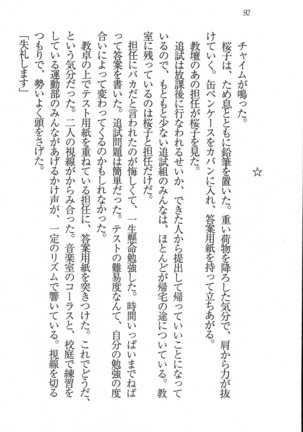 92
☆
チャイムが鳴った。
桜子は、ため息とともに鉛筆を置いた。重い荷物を降ろした気分で、肩から力が抜
けていく。缶ペンケースをカバンに入れ、答案用紙を持って立ちあがる。
教壇のあの担任が桜子を見た。
追試は放課後に行なわれるせいか、できた人から提出して帰っていいことになって
いるので、もともと少ない追試組のみんなは、ほとんどが帰宅の途についている。教
室に残っているのは桜子と担任だけだ。
担任にバカだと言われたのが悔しくて、一生懸命勉強した。時間いっぱいまでねば
って答案を書いた。追試問題は簡単だった。テストの難易度なんて、自分の勉強の度
合いによって変わってくるのかもしれなかった。
教卓の上でテスト用紙を重ねている担任に、答案用紙を突きつけた。これでどうだ、
という気分だった。二人の視線がからみ合った。音楽室のコーラスと、校庭で練習を
している運動部のみんながあげるかけ声が、一定のリズムで響いている。視線を切る
つもりで、勢いよく頭をさげた。
「失礼します」